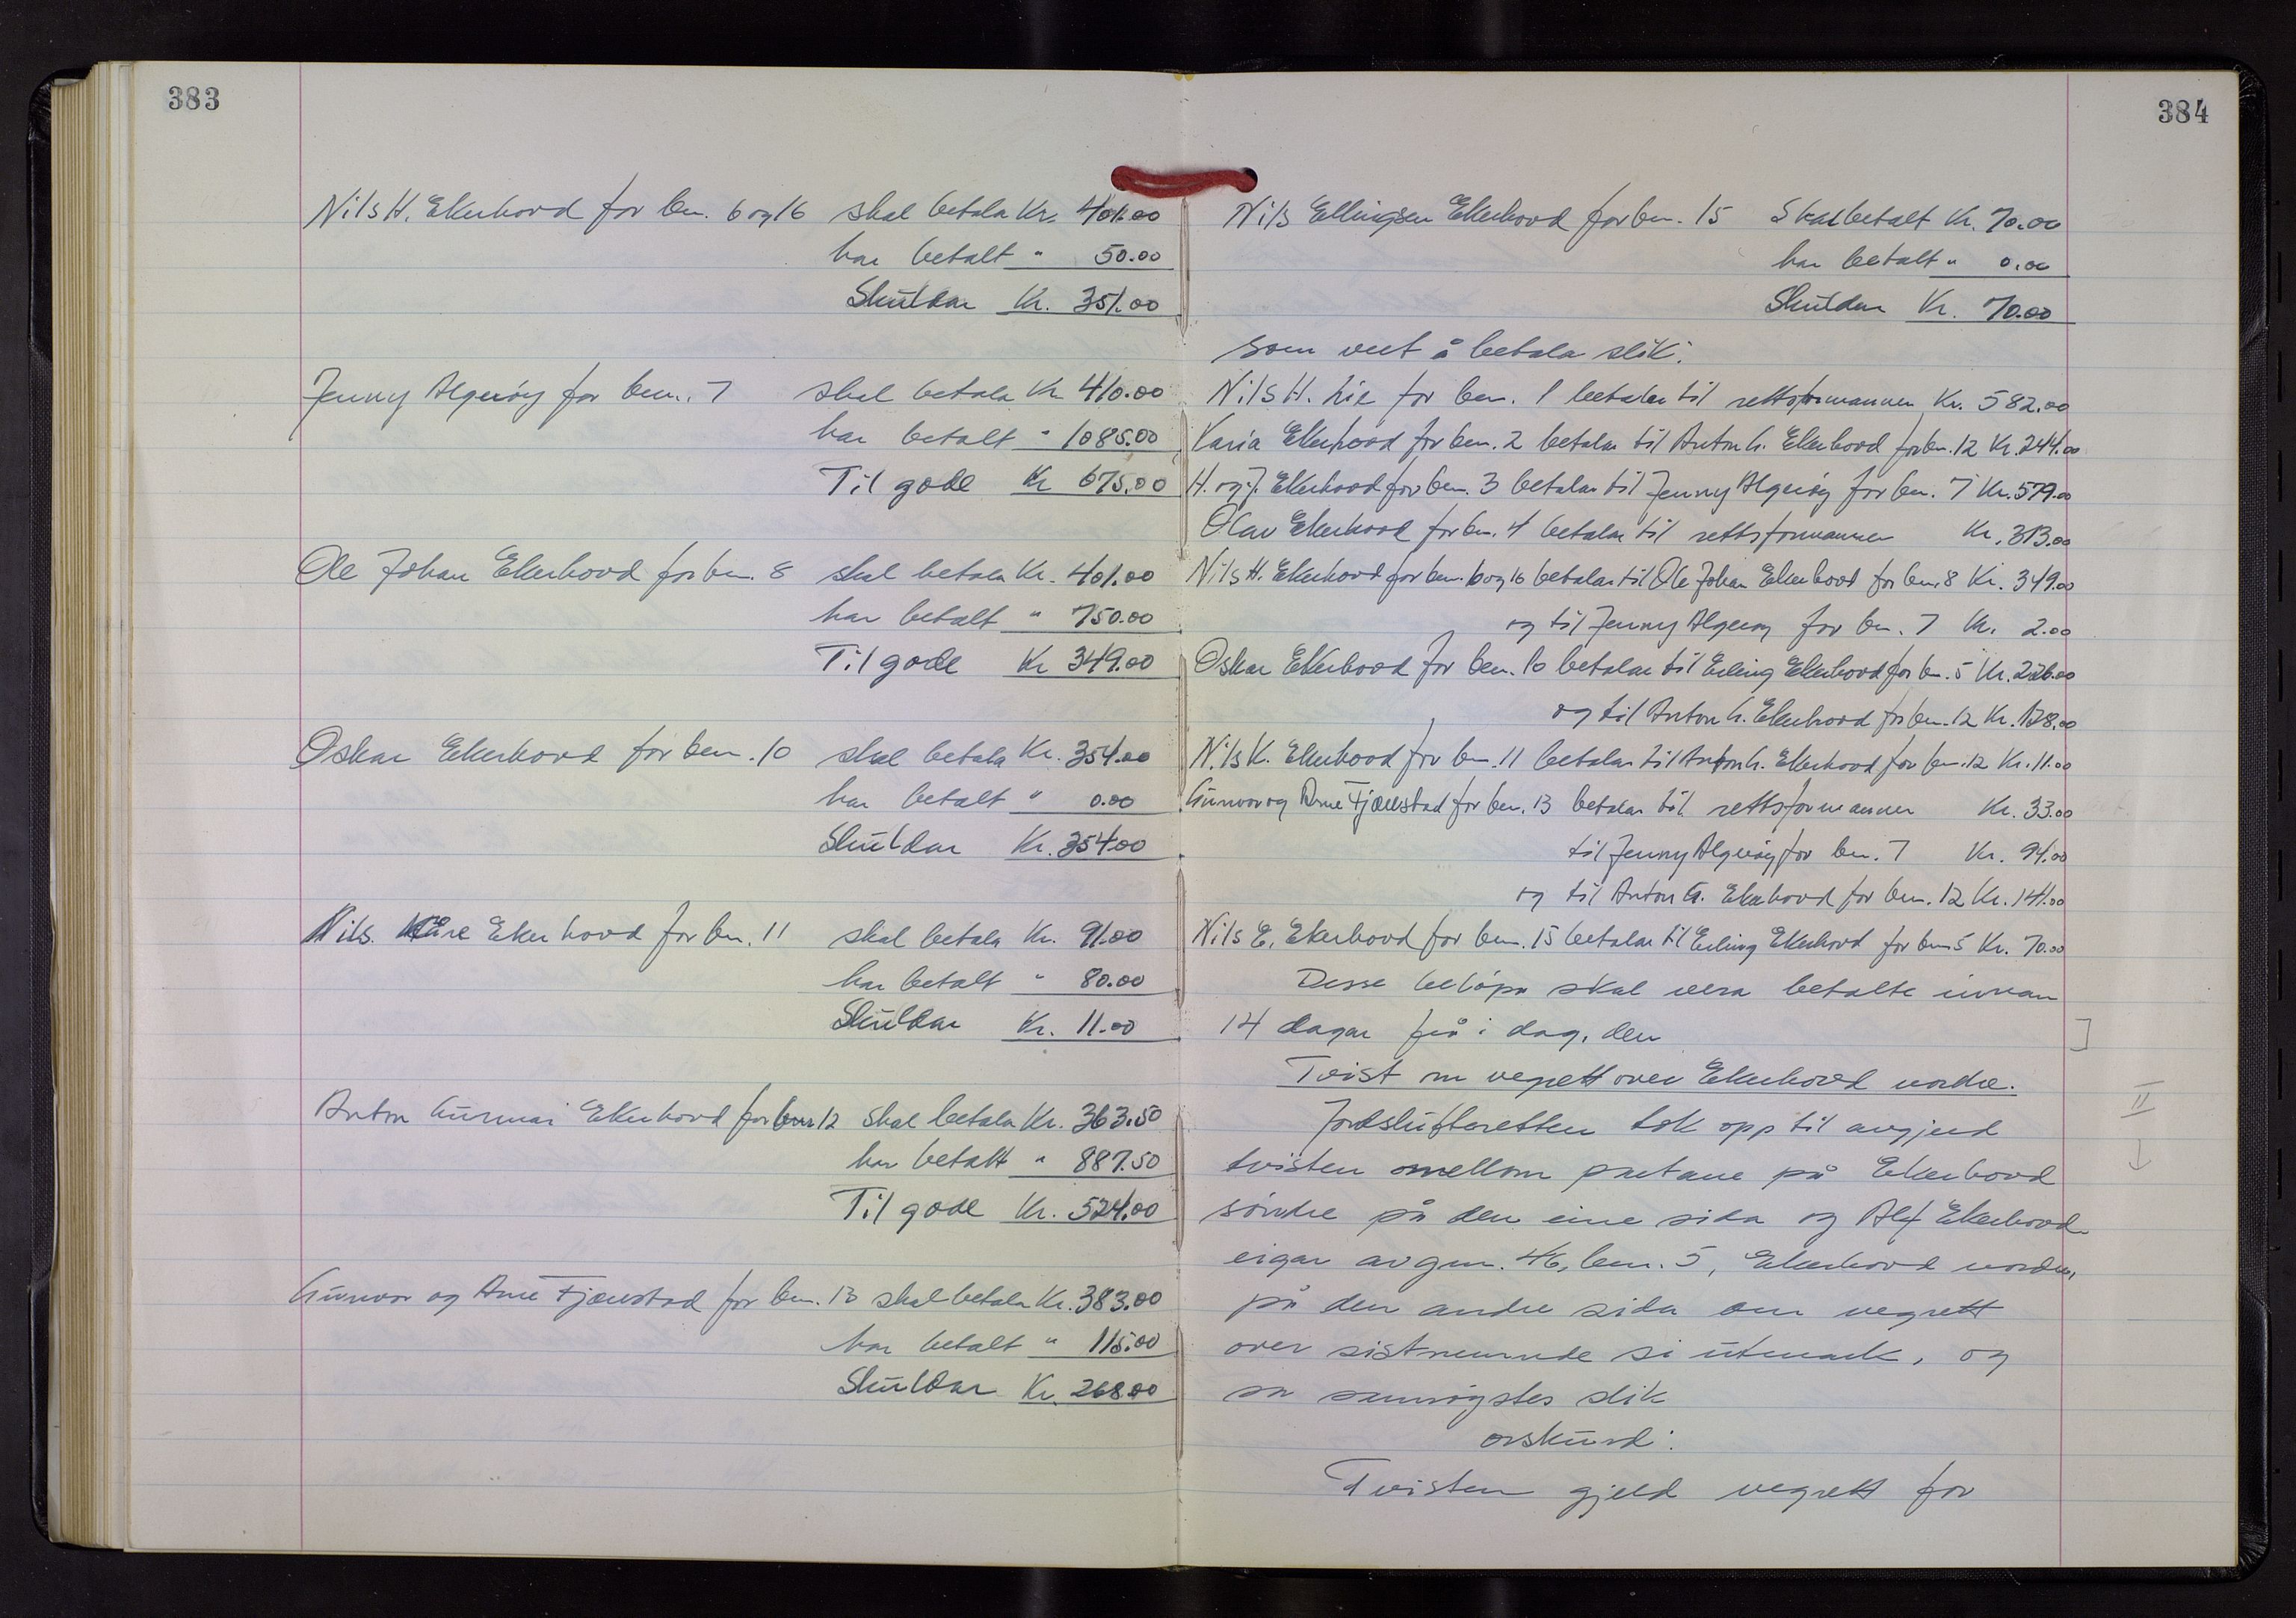 383
Nils H. Ekerhovd for bnr. 6 og 16 skal betala Kr. 401.00
har betalt " 50.00
Skuldar Kr. 351.00
Jenny Algerøy for bnr. 7 skal betala Kr 410.00
har betalt " 1085.00
Til gode Kr 675.00
Ole Johan Ekerhovd for bnr. 8 skal betala Kr. 401.00
har betalt " 750.00
Til gode Kr 349.00
Oskar Ekerhovd for bnr. 10 skal betala Kr. 354.00
har betalt " 0.00
Skuldar Kr. 354.00
Nils Kåre Ekerhovd for bnr. 11 skal betala Kr. 91.00
har betalt " 80.00
Skuldar Kr. 11.00
Anton Gunnar Ekerhovd for bnr 12 skal betala Kr. 363.50
har betalt " 887.50
Til gode Kr. 524.00
Gunvor og Arne Fjælstad for bnr. 13 skal betala Kr. 383.00
har betalt " 115.00
Skuldar Kr. 268.00
384
Nils Ellingsen Ekerhovd for bnr. 15 Skal betalt Kr. 70.00
har betalt " 0.00
Skuldar Kr. 70.00
som vert å betala slik:
Nils H. Lie for bnr. 1 betalar til rettsformannen Kr. 582.00
Karia Ekerhovd for bnr. 2 betalar til Anton G. Ekerhovd for bnr. 12 Kr. 244.00
H. og J. Ekerhovd for bnr. 3 betalar til Jenny Algerøy for bnr. 7 Kr. 579.00
Olav Ekerhovd for bnr. 4 betalar til rettsformannen Kr. 313.00
Nils H. Ekerhovd for bnr. 6 og 16 betalar til Ole Johan Ekerhovd for bnr. 8 Kr. 349.00
og til Jenny Algerøy for bnr. 7 Kr. 2.00
Oskar Ekerhovd for bnr. 10 betalar til Erling Ekerhovd for bnr. 5 Kr. 226.00
og til Anton G. Ekerhovd for bnr. 12 Kr. 128.00
Nils K. Ekerhovd for bnr. 11 betalar til Anton G. Ekerhovd for bnr. 12 Kr. 11.00
Gunvor og Arne Fjælstad for bnr. 13 betalar til rettsformannen Kr. 33.00
til Jenny Algerøy for bnr. 7 Kr. 94.00
og til Anton G. Ekerhovd for bnr. 12 Kr. 141.00
Nils E. Ekerhovd for bnr. 15 betalar til Erling Ekerhovd for bnr 5 Kr. 70.00
Desse beløpa skal vera betalte innan
14 dagar frå i dag, den ]
Tvist om vegrett over Ekerhovd nordre.
II
Jordskifteretten tok opp til avgjerd
tvisten omellom partane på Ekerhovd
søndre på den eine sida og Alf Ekerhovd
eigar av gnr. 46, bnr. 5, Ekerhovd nordre,
på den andre sida om vegrett
over sistnemnde si utmark, og
sa samrøystes slik
orskurd:
Tvisten gjeld vegrett for